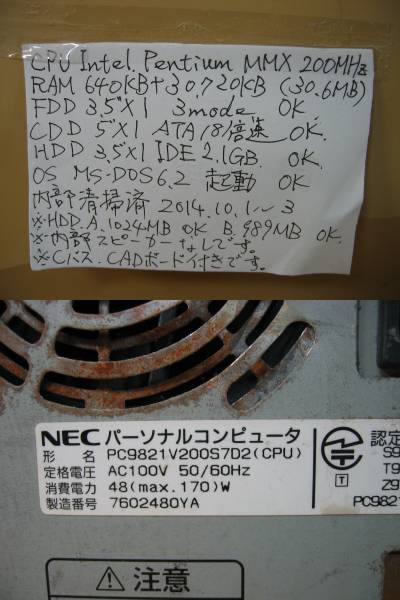 CPU Intel. Pentium MMX 200MHz
RAM 640KB+30,720KB (30.6MB)
FDD 3.5"X1 3mode OK
CDD 5"X1 ATA 18倍速 OK.
HDD 3.5X1 IDE 2.1GB. OK.
OS MS-DOS6.2 起動 OK
内部清掃済 2014.10.1~3
※HDD.A.1024MB OK B.989MB OK.
※内部スピーカーなしです。
※Cバス.CADボード付きです。
NEC パーソナルコンピュータ
形名 PC9821V200S7D2(CPU)
定格電圧 AC100V 50/60Hz
消費電力 48(max.170)W
製造番号 7602480YA
T
認定
S9
T9
Z9
PC9821
注意